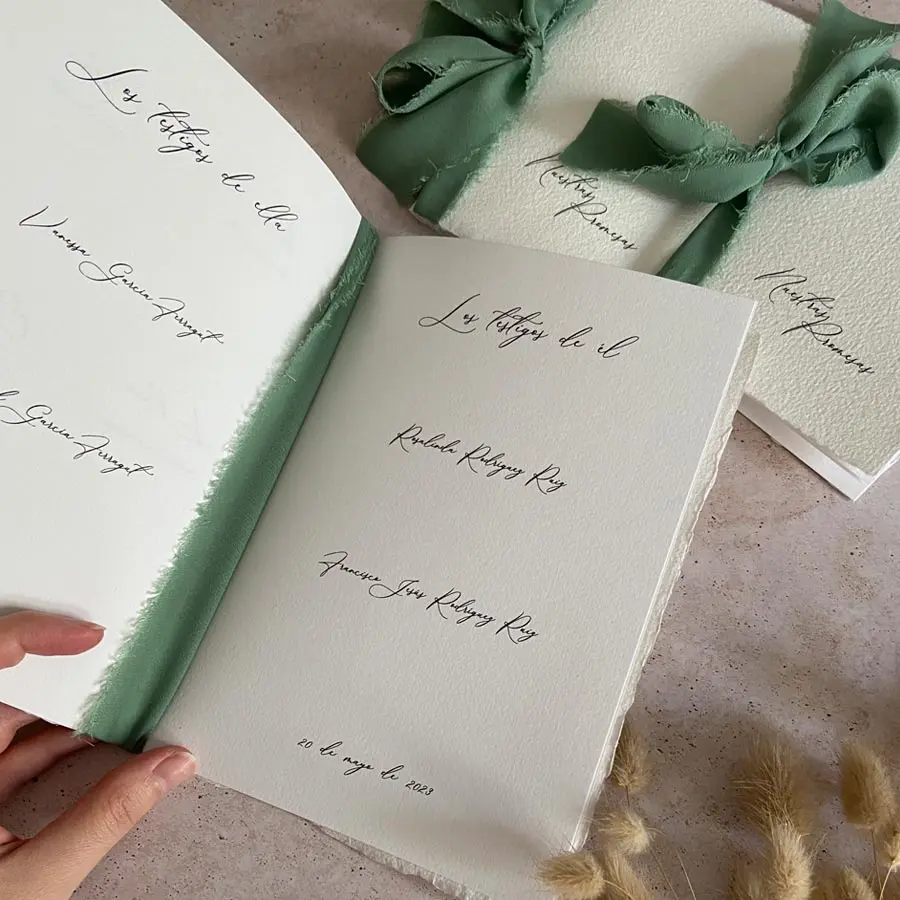 Los testigos de ella
Vanessa García Ferragut
García Ferragut
Los testigos de él
Rosalinda Rodríguez Ruiz
Francisco Jesús Rodríguez Ruiz
20 de mayo de 2023
Nuestras
Promesas
Nuestras
Promesas